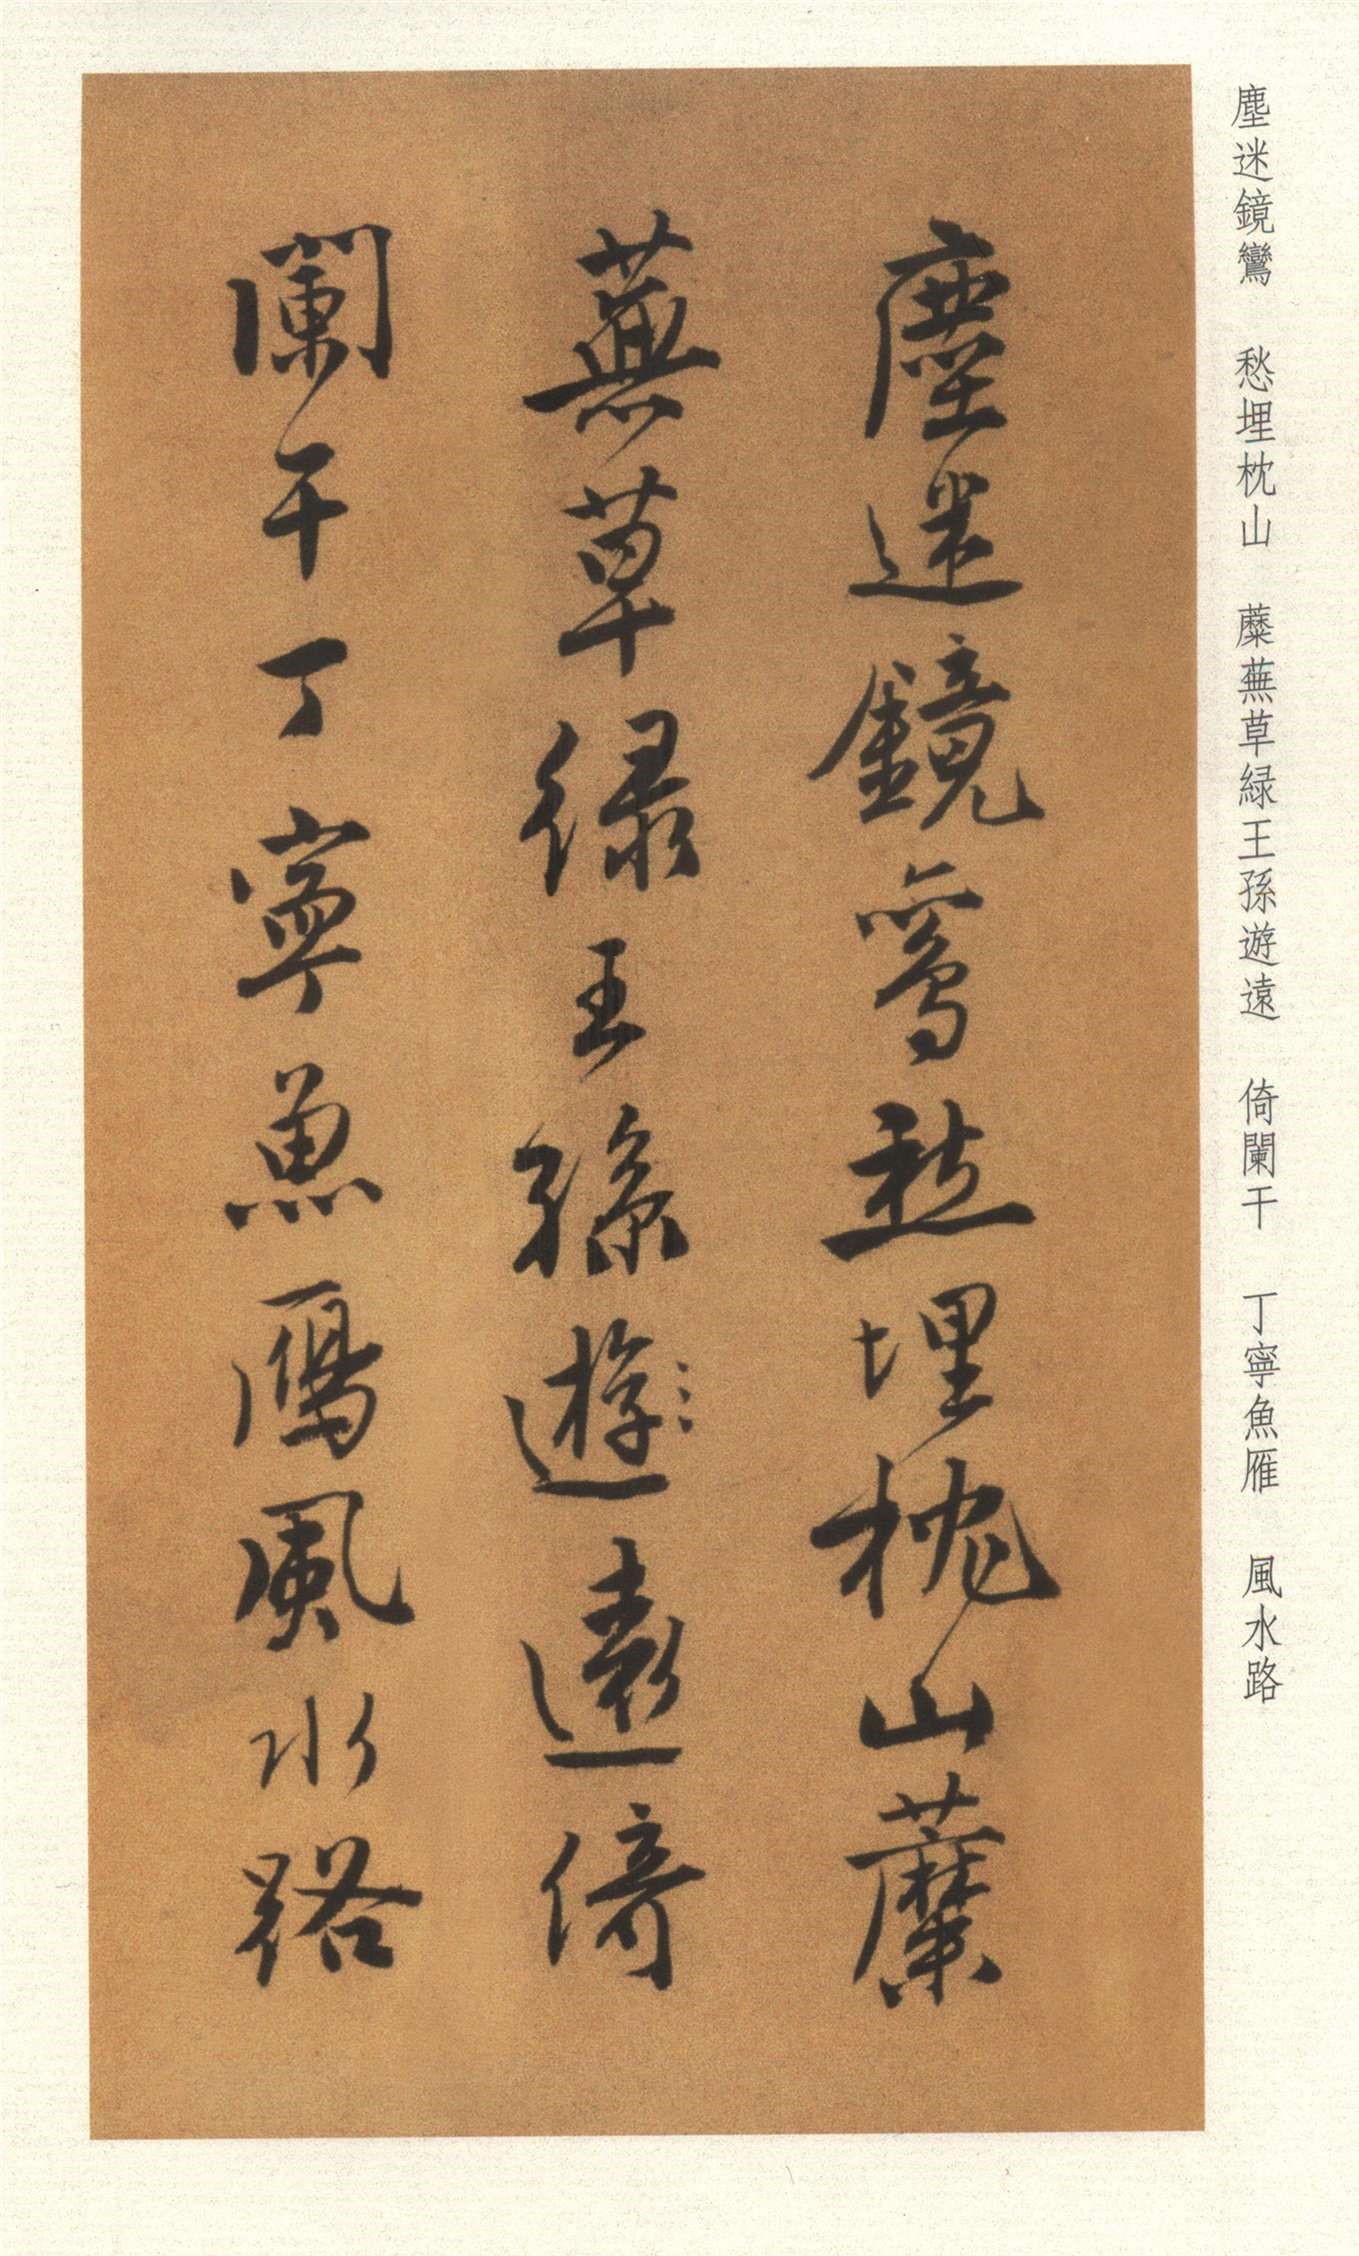 塵迷鏡鸞　愁埋枕山　蘼蕪草緑王孫遊遠　倚闌干　丁寧魚雁　風水路
塵迷鏡鸞愁埋枕山蘼
蕪草緑王孫遊遠倚
闌干丁寧魚鴈風水路